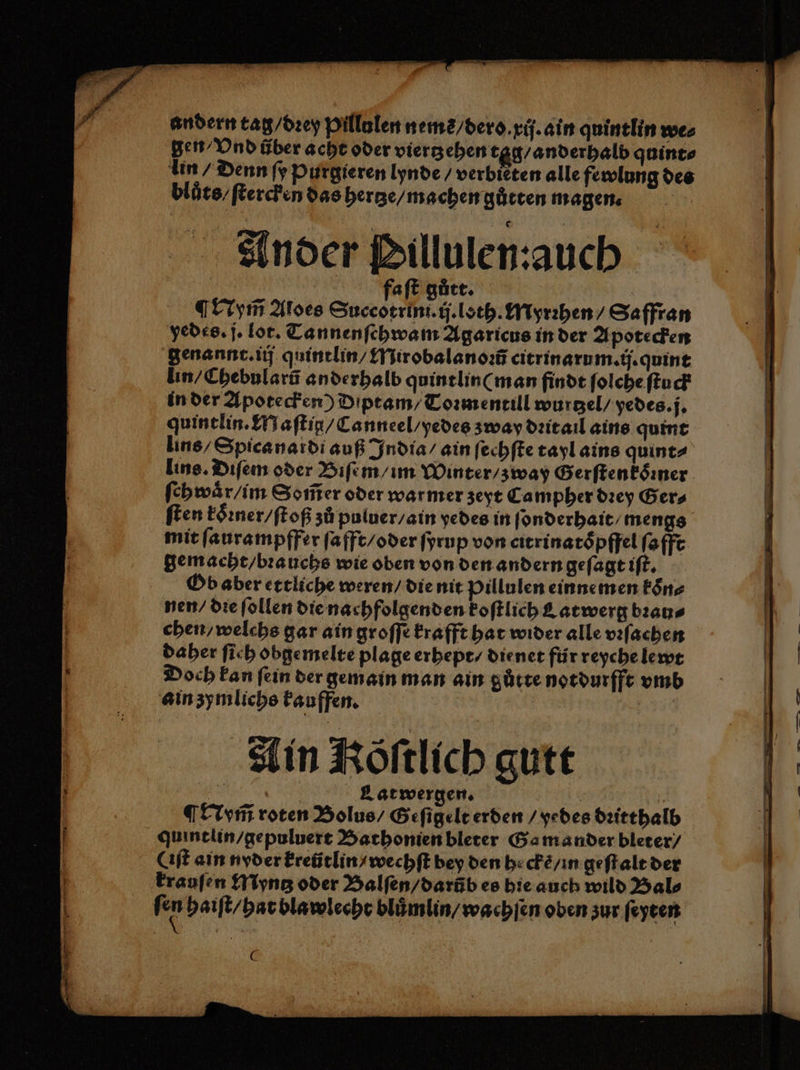 andern tag/dꝛey Pillulen nemẽ/dero.xij.ain quintlin we⸗
gen/Vnd über acht oder viertzehen tag/anderhalb quint⸗
lin / Denn ſy Purgieren lynde / verbieten alle fewlung des
blůts/ſtercken das hertze/machen gůtten magen.
Ander Pillulen:auch
faſt gůtt.
¶Nym̃ Aloes Succotrini.ij.loth.Myrꝛhen / Saffran
yedes.j.lot.Tannenſchwam Agaricus in der Apotecken
genannt.iij quintlin/Mirobalanoꝛũ citrinarum.ij.quint
lin/Chebularũ anderhalb quintlin(man findt ſolche ſtuck
in der Apotecken)Diptam/Toꝛmentill wurtzel/yedes.j.
quintlin.Maſtix/Canneel/yedes zway dꝛitail ains quint
lins/Spicanardi auß India/ain ſechſte tayl ains quint⸗
lins.Diſem oder Biſem/im Winter/zway Gerſtenkoͤꝛner
ſchwaͤr/im Som̃er oder warmer zeyt Campher dꝛey Ger⸗
ſten koͤꝛner/ſtoß zů puluer/ain yedes in ſonderhait/mengs
mit ſaurampffer ſafft/oder ſyrup von citrinatoͤpffel ſafft
gemacht/bꝛauchs wie oben von den andern geſagt iſt.
Ob aber ettliche weren/die nit Pillulen einnemen koͤn⸗
nen/die ſollen die nachfolgenden koſtlich Latwerg bꝛau⸗
chen/welchs gar ain groſſe krafft hat wider alle vꝛſachen
daher ſich obgemelte plage erhept/dienet für reyche lewt
Doch kan ſein der gemain man ain gůtte notdurfft vmb
ain zymlichs kauffen.
Ain Koͤſtlich gutt
Latwergen.
¶Nym̃ roten Bolus/Geſigelt erden / yedes dꝛitthalb
quintlin/gepuluert Bathonien bleter Gamander bleter/
(iſt ain nyder kreütlin/wechſt bey den heckẽ/in geſtalt der
krauſen Myntz oder Balſen/darüb es hie auch wild Bal⸗
ſen haiſt/hat blawlecht blůmlin/wachſen oben zur ſeyten
C